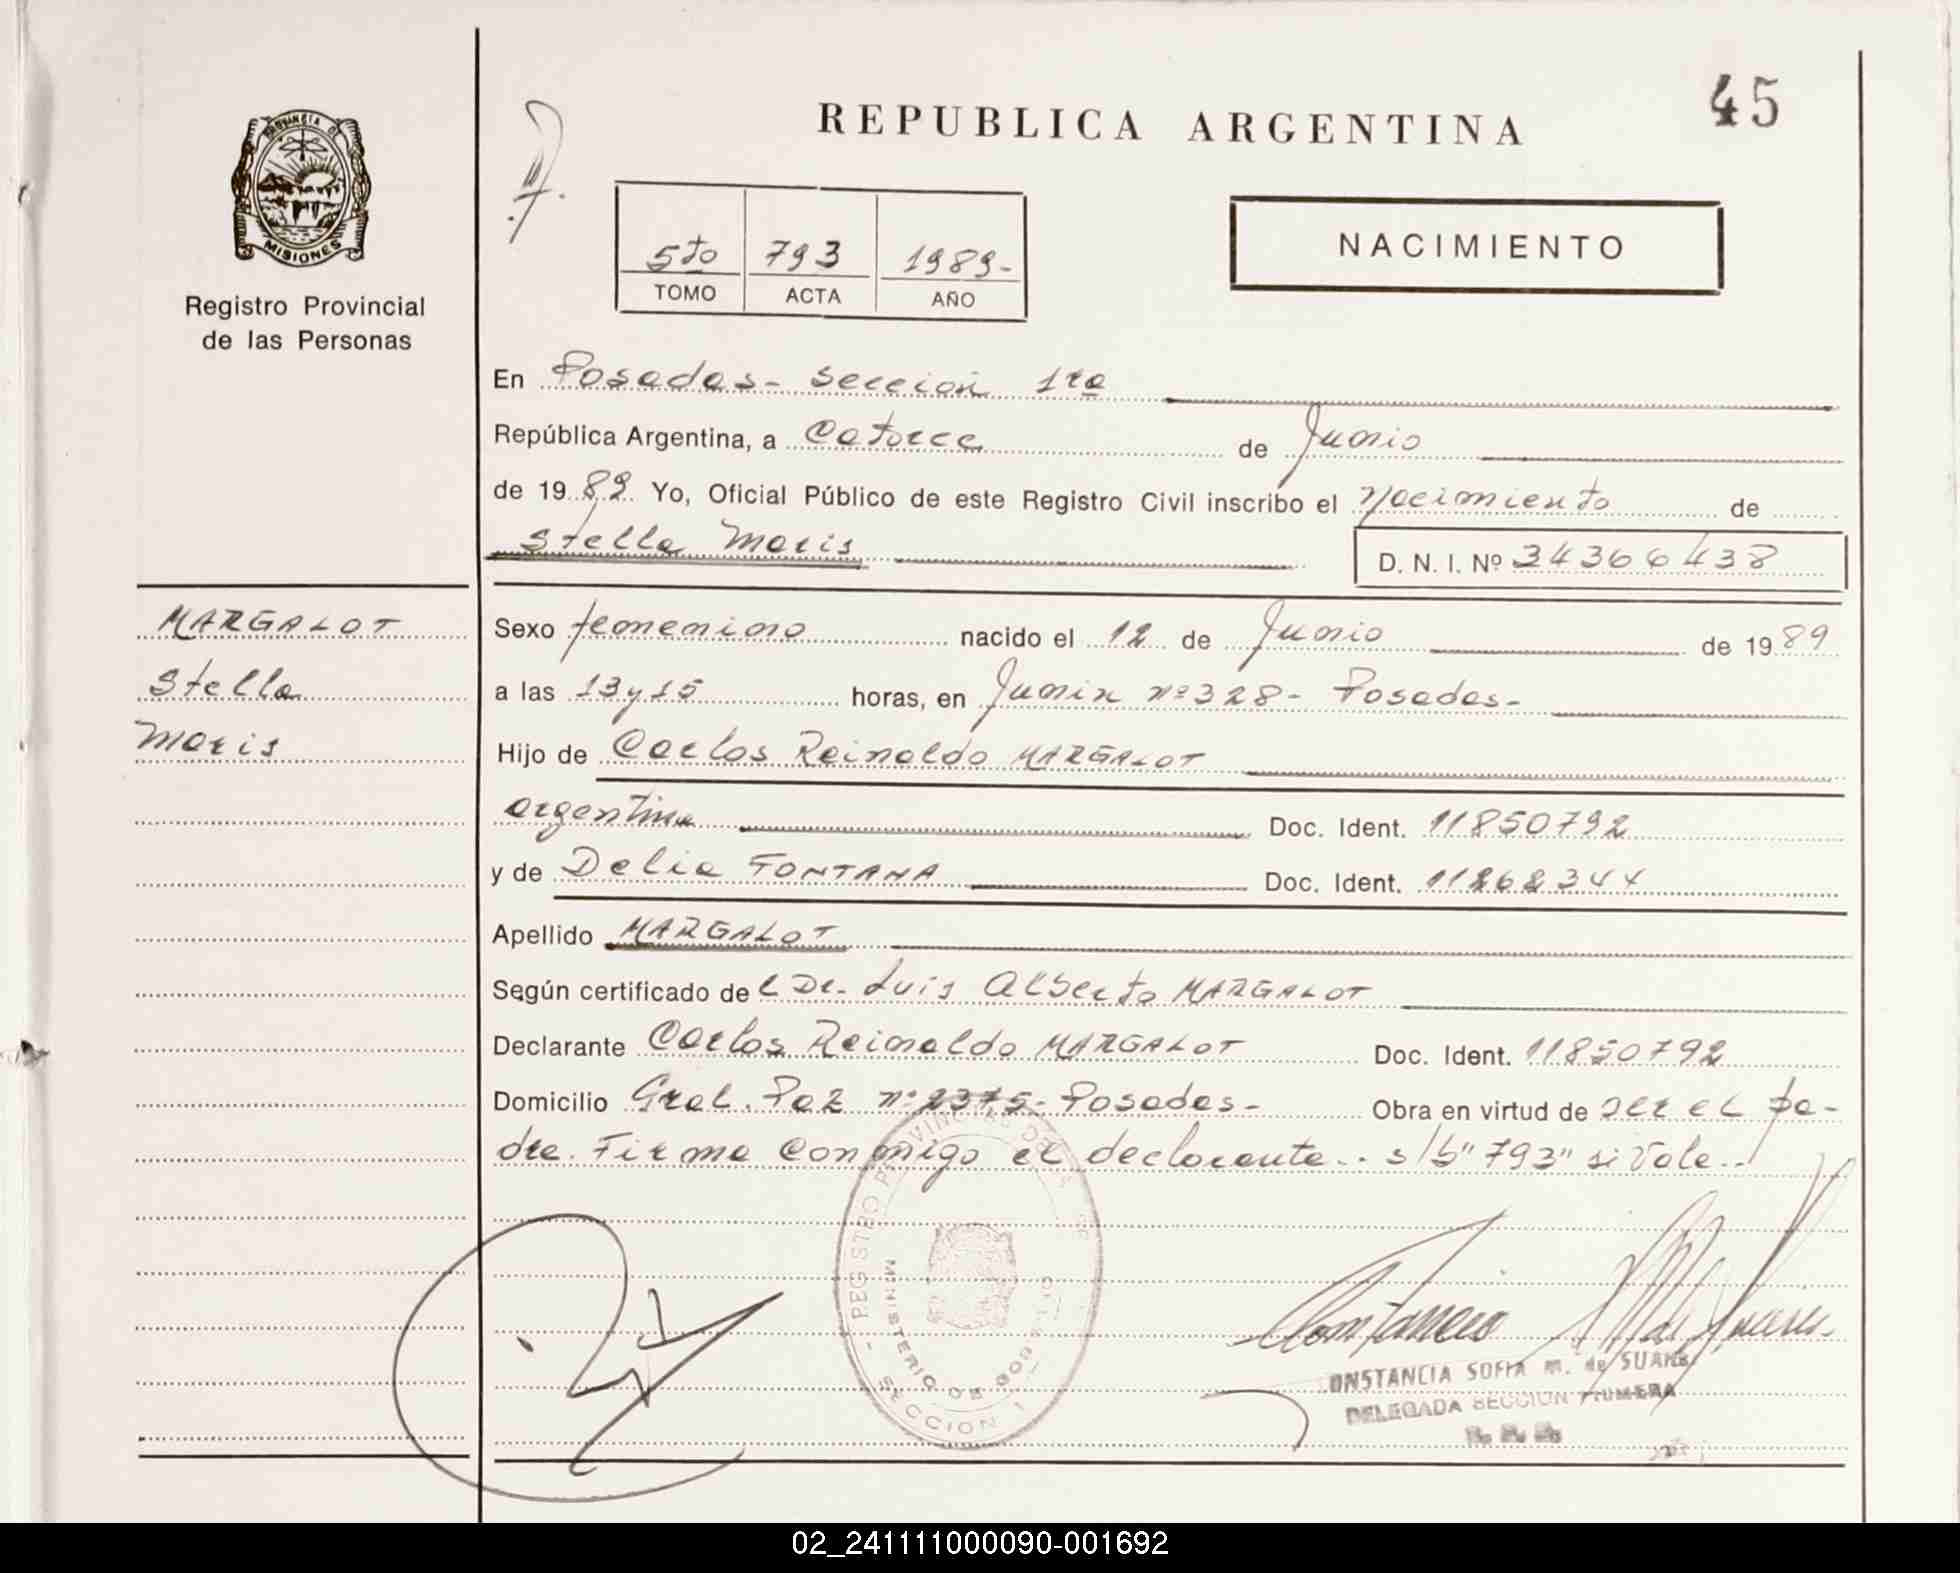 45
REPUBLICA ARGENTINA
PROVINCIA DE
MISIONES
Registro Provincial
de las Personas
5to 793 1989-
TOMO ACTA AÑO
NACIMIENTO
En Posadas- Sección 1ra
República Argentina, a Catorce de Junio
de 1989 Yo, Oficial Público de este Registro Civil inscribo el Nacimiento de
Stella Maris
D. N. I. Nº 34366438
MARGALOT
Stella
Maris
Sexo femenino nacido el 12 de Junio de 1989
a las 13 y 15 horas, en Junin nº 328- Posadas-
Hijo de Carlos Reinaldo MARGALOT
argentina Doc. Ident. 11850792
y de Delia FONTANA Doc. Ident. 11262344
Apellido MARGALOT
Según certificado del Dr. Luis Alberto MARGALOT
Declarante Carlos Reinaldo MARGALOT Doc. Ident. 11850792
Domicilio Gral. Paz nº 2375- Posadas- Obra en virtud de ser el pa-
dre. Firma conmigo el declarante.. s/b "793" si vale..
REGISTRO PROVINCIAL DE LAS
MINISTERIO DE GOBIERNO
SECCION 1
ONSTANCIA SOFIA M. de SUAREZ
DELEGADA SECCION PRIMERA
02_241111000090-001692